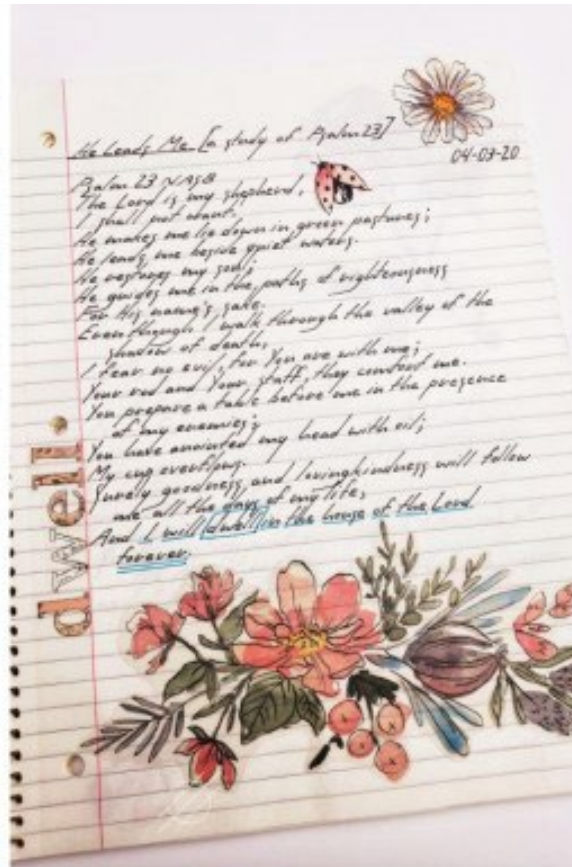 He Leads Me [a study of Psalm 23]
04-03-20
Psalm 23 NASB
The Lord is my shepherd,
I shall not want.
He makes me lie down in green pastures;
He leads me beside quiet waters.
He restores my soul;
He guides me in the paths of righteousness
For His name's sake.
Even though I walk through the valley of the
shadow of death,
I fear no evil, for You are with me;
Your rod and Your staff, they comfort me.
You prepare a table before me in the presence
of my enemies;
You have anointed my head with oil;
My cup overflows.
Surely goodness and lovingkindness will follow
me all the days of my life,
And I will dwell in the house of the Lord
forever.
dwell